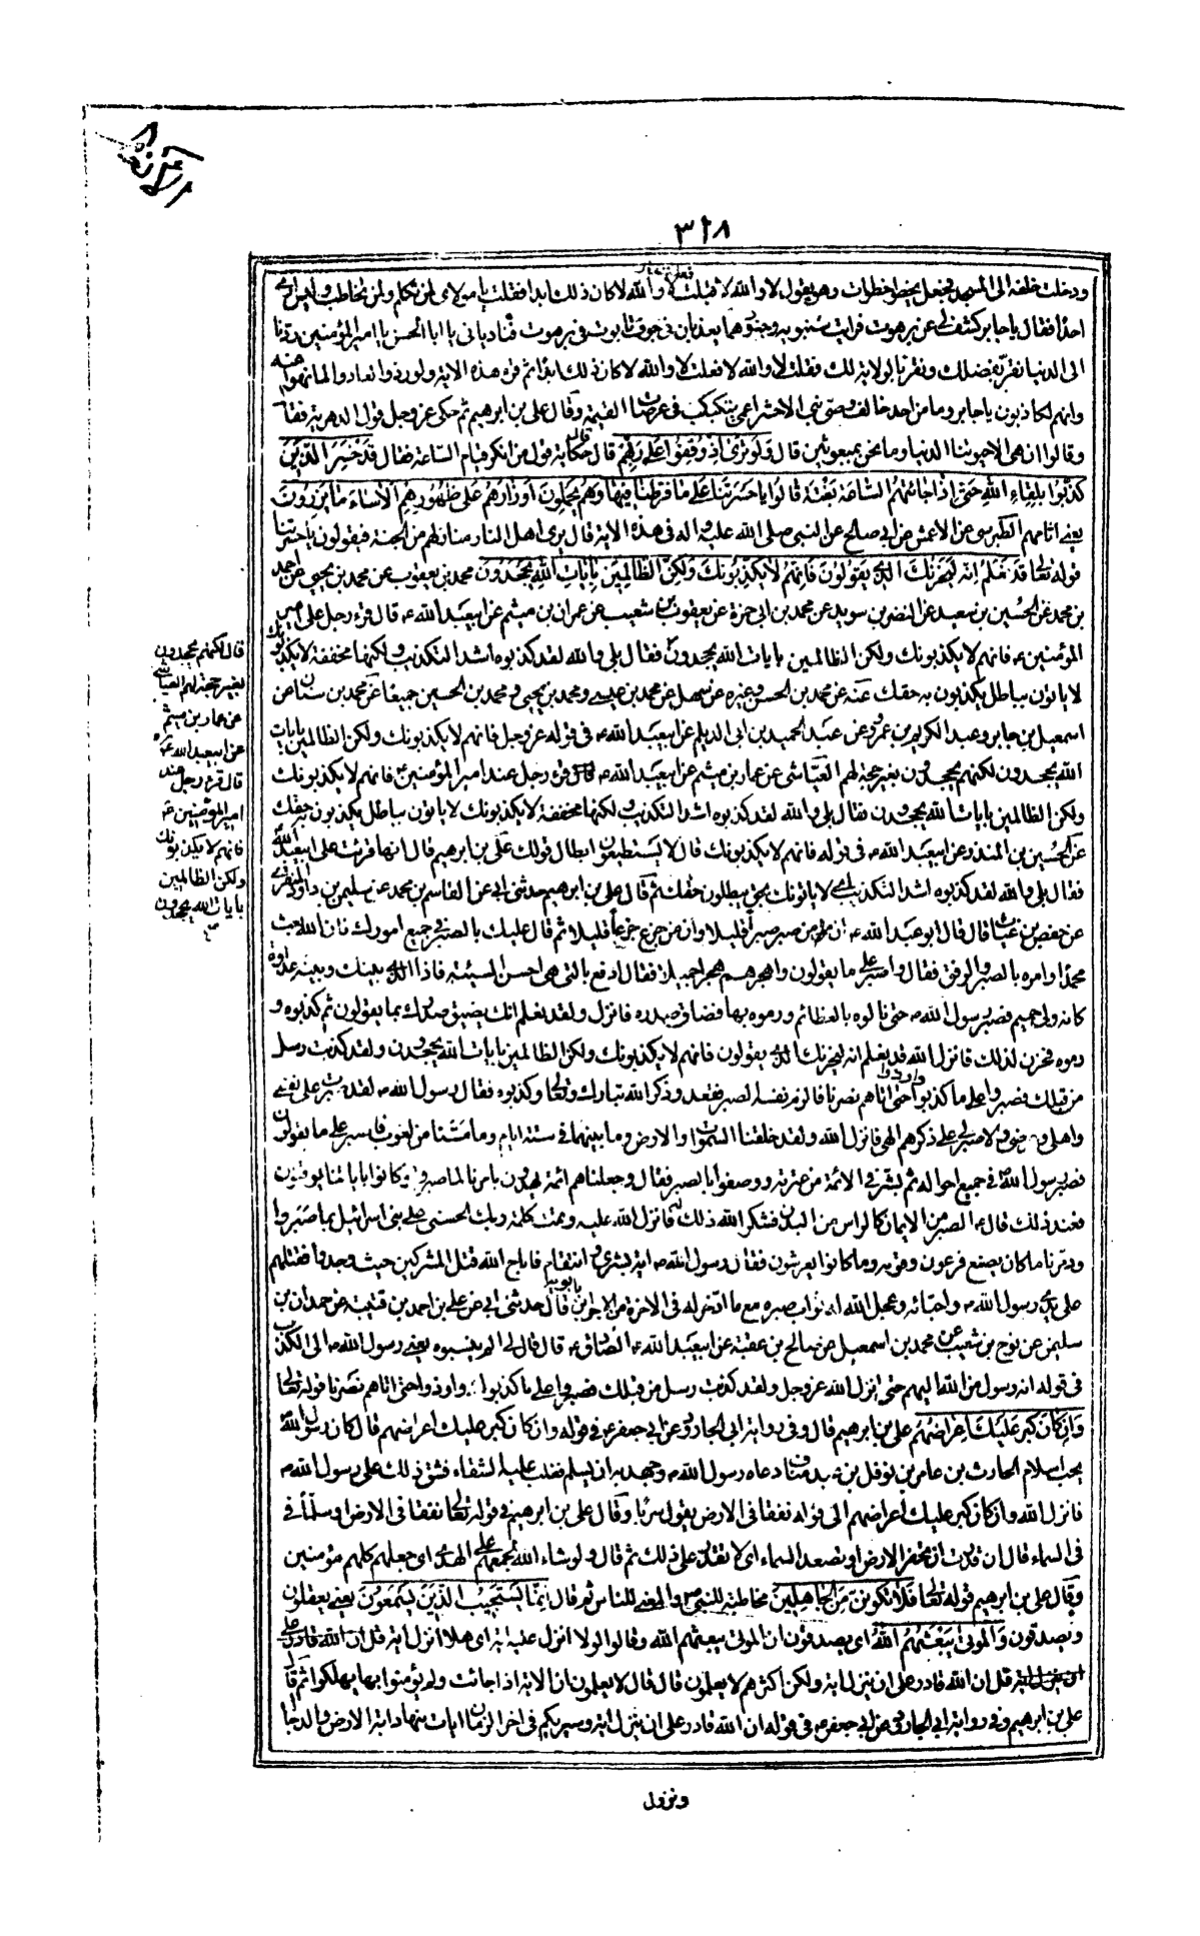 الانعام
٣١٨
ودخلت خلفه الى المسجد فجعل يخطو خطوات وهو يقول لا والله لا فعلت لا والله لا كان ذلك ابدا فقلت يا مولاى لمن تكلم ولمن تخاطب وليس ارى
احدا فقال يا جابر كشف لى عن برهوت فرايت وهما يعذبان فى جوف تابوت فى برهوت فنادیانى يا ابا الحسن يا امير المؤمنين ردنا
الى الدنيا نقر بفضلك ونقر بالولاية لك فقلت لا والله لا فعلت لا والله لا كان ذلك ابدا ثم قرء هذه الاية ولو ردوا لعادوا لما نهوا عنه
وانهم لكاذبون يا جابر وما من احد خالف وصى نبى الا حشر اعمى يتكبكب فى عرصات القيمة وقال على بن ابرهيم ثم حكى عز وجل قول الدهرية فقال
وقالوا ان هى الا حيوتنا الدنيا وما نحن بمبعوثين قال ولو ترى اذ وقفوا على ربهم قال حكاية قول من انكر قيام الساعة فقال قد خسر الذين
كذبوا بلقاء الله حتى اذا جائتهم الساعة بغتة قالوا يا حسرتنا على ما فرطنا فيها وهم يحملون اوزارهم على ظهورهم الا ساء ما يزرون
يعنى اثامهم الطبرسى عن الاعمش عن ابى صالح عن النبى صلى الله عليه واله فى هذه الاية قال يرى اهل النار منازلهم من الجنة فيقولون يا حسرتنا
قوله تعالى قد نعلم انه ليحزنك الذى يقولون فانهم لا يكذبونك ولكن الظالمين بايات الله يجحدون محمد بن يعقوب عن محمد بن يحيى عن احمد
بن محمد عن الحسين بن سعيد عن النضر بن سويد عن محمد بن ابى حمزة عن يعقوب بن شعيب عن عمران بن ميثم عن ابيعبد الله ع قال قرء رجل على امير
المؤمنين ع فانهم لا يكذبونك ولكن الظالمين بايات الله يجحدون فقال بلى والله لقد كذبوه اشد التكذيب ولكنها مخففة لا يكذبونك
لا ياتون بباطل يكذبون به حقك عنه عن محمد بن الحسن وغيره عن سهل عن محمد بن عيسى ومحمد بن يحيى ومحمد بن الحسين جميعا عن محمد بن سنان عن
اسمعيل بن جابر وعبد الكريم بن عمرو عن عبد الحميد بن ابى الديلم عن ابيعبد الله ع فى قوله عز وجل فانهم لا يكذبونك ولكن الظالمين بايات
الله يجحدون لكنهم يجحدون بغير حجة لهم العياشى عن عمار بن ميثم عن ابيعبد الله ع قال قرء رجل عند امير المؤمنين ع فانهم لا يكذبونك
ولكن الظالمين بايات الله يجحدون فقال بلى والله لقد كذبوه اشد التكذيب ولكنها مخففة لا يكذبونك لا ياتون بباطل يكذبون به حقك
عن الحسين بن المنذر عن ابيعبد الله ع فى قوله فانهم لا يكذبونك قال لا يستطيعون ابطال قولك على بن ابرهيم قال انها قرئت على ابيعبد الله
فقال بلى والله لقد كذبوه اشد التكذيب لا ياتونك بحق يبطلون حقك ثم قال على بن ابرهيم حدثنى ابى عن القاسم بن محمد عن سليمن بن داود المنقرى
عن حفص بن غياث قال قال ابو عبد الله ع ان من صبر صبر قليلا وان من جزع جزع قليلا ثم قال عليك بالصبر فى جميع امورك فان الله بعث
محمدا وامره بالصبر والرفق فقال واصبر على ما يقولون واهجرهم هجرا جميلا فقال ادفع بالتى هى احسن السيئة فاذا الذى بينك وبينه عداوة
كانه ولى حميم فصبر رسول الله ص حتى نالوه بالعظائم ورموه بها فضاق صدره فانزل ولقد نعلم انك يضيق صدرك بما يقولون ثم كذبوه و
رموه فحزن لذلك فانزل الله قد نعلم انه ليحزنك الذى يقولون فانهم لا يكذبونك ولكن الظالمين بايات الله يجحدون ولقد كذبت رسل
من قبلك فصبروا على ما كذبوا واوذوا حتى اتاهم نصرنا فالزم نفسه الصبر فقعد وذكر الله تبارك وتعالى وكذبوه فقال رسول الله ص لقد صبرت على نفسى
واهلى وعرضى ولا صبر لى على ذكرهم الهى فانزل الله ولقد خلقنا السموات والارض وما بينهما فى ستة ايام وما مسنا من لغوب فاصبر على ما يقولون
فصبر رسول الله ص فى جميع احواله ثم بشر فى الائمة من عترته ووصفوا بالصبر فقال وجعلناهم ائمة يهدون بامرنا لما صبروا وكانوا باياتنا يوقنون
فعند ذلك قال ع الصبر من الايمان كالراس من البدن فشكر الله ذلك له فانزل الله عليه وتمت كلمة ربك الحسنى على بنى اسرائيل بما صبروا
ودمرنا ما كان يصنع فرعون وقومه وما كانوا يعرشون فقال رسول الله ص اية بشرى وانتقام فاباح الله قتل المشركين حيث وجدوا فقتلهم
على يدى رسول الله ص واحبائه وعجل الله له ثواب صبره مع ما ادخر له فى الاخرة من الاجر ابن بابويه قال حدثنى ابى عن على بن احمد بن قتيبة عن حمدان بن
سليمن عن نوح بن شعيب عن محمد بن اسمعيل عن صالح بن عقبة عن ابيعبد الله الصادق ع قال قال لى الم ينسبوه يعنى رسول الله ص الى الكذب
فى قوله انه رسول من الله اليهم حتى انزل الله عز وجل ولقد كذبت رسل من قبلك فصبروا على ما كذبوا واوذوا حتى اتاهم نصرنا قوله تعالى
وان كان كبر عليك اعراضهم على بن ابرهيم قال وفى رواية ابى الجارود عن ابى جعفر ع فى قوله وان كان كبر عليك اعراضهم قال كان رسول الله
يحب اسلام الحارث بن عامر بن نوفل بن عبد مناف دعاه رسول الله ص وجهد به ان يسلم فغلب عليه الشقاء فشق ذلك على رسول الله ص
فانزل الله وان كان كبر عليك اعراضهم الى قوله نفقا فى الارض يقول سربا وقال على بن ابرهيم فى قوله تعالى نفقا فى الارض او سلما فى
فى السماء قال ان قدرت ان تحفر الارض او تصعد السماء اى لا تقدر على ذلك ثم قال ولو شاء الله لجمعهم على الهدى اى جعلهم كلهم مؤمنين
وقال على بن ابرهيم قوله تعالى فلا تكونن من الجاهلين مخاطبة للنبى ص والمعنى للناس ثم قال انما يستجيب الذين يسمعون يعنى يعقلون
ويصدقون والموتى يبعثهم الله اى يصدقون ان الموتى يبعثهم الله وقالوا لولا انزل عليه اية اى هلا انزل اية قل ان الله قادر على
ان ينزل اية قل ان الله قادر على ان ينزل اية ولكن اكثرهم لا يعلمون قال قال لا يعلمون ان الاية اذا جائت ولم يؤمنوا بها يهلكوا ثم قال
على بن ابرهيم وفى رواية ابى الجارود عن ابى جعفر ع فى قوله ان الله قادر على ان ينزل اية وسيريكم فى اخر الزمان ايات منها دابة الارض والدجال
قال لكنهم يجحدون
بغير حجة لهم العياشى
عن عمار بن ميثم
عن ابيعبد الله ع
قال قرء رجل عند
امير المؤمنين ع
فانهم لا يكذبونك
ولكن الظالمين
بايات الله يجحدون
ونزول